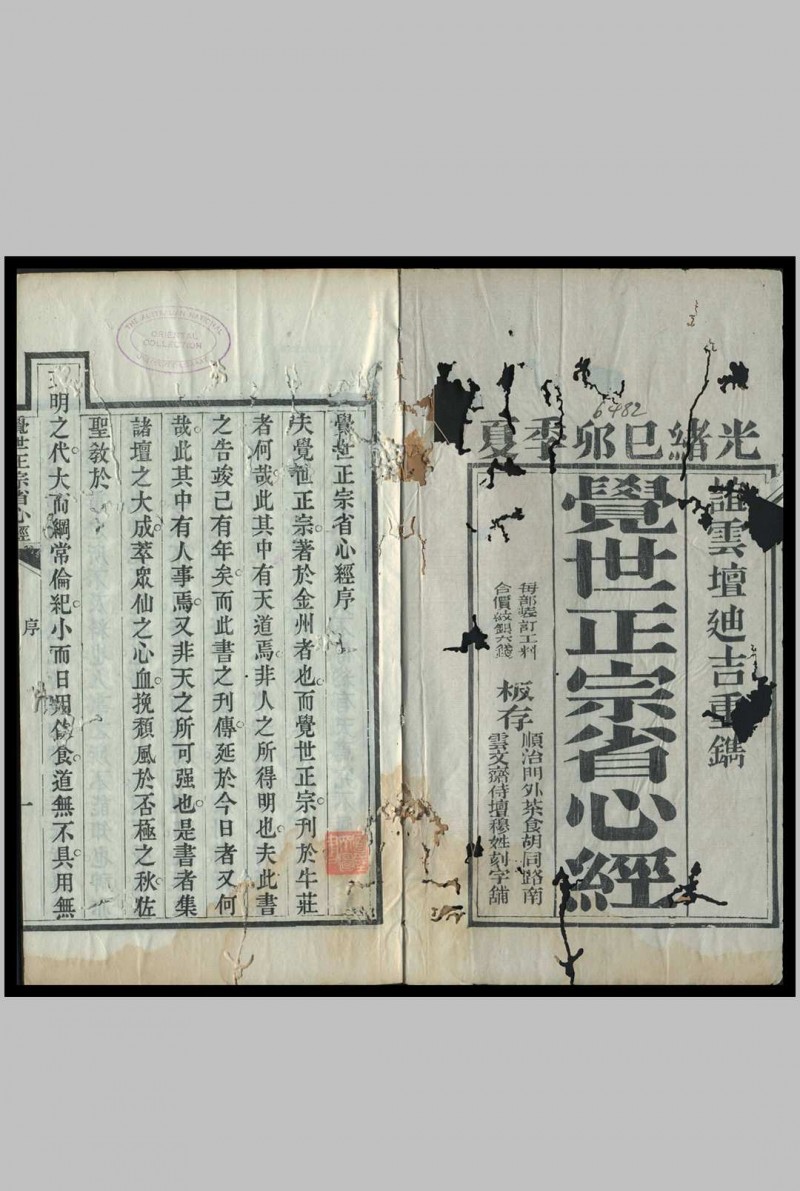 光緒巳夘季夏
6482
雲壇廸吉重鐫
覺世正宗省心經
每部裝訂工料
合價紋銀六錢
板存
順治門外茶食胡同路南
雲文齋侍壇穆姓刻字舖
THE AUSTRALIAN NATIONAL
ORIENTAL
COLLECTION
覺世正宗省心經序
夫覺世正宗著於金州者也而覺世正宗刊於牛莊
者何哉此其中有天道焉非人之所得明也夫此書
之告竣已有年矣而此書之刊傳延於今日者又何
哉此其中有人事焉又非天之所可强也是書者集
諸壇之大成萃眾仙之心血挽頹風於否極之秋佐
聖敎於
明之代大而綱常倫紀小而日用飲食道無不具用無
覺世正宗省心經
序
一